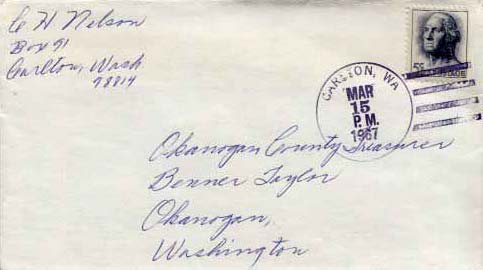 C H Nelson
Box 91
Carlton, Wash
98814
5¢
CARLTON, WA
MAR
15
P.M.
1967
Okanogan County Treasurer
Benner Taylor
Okanogan,
Washington